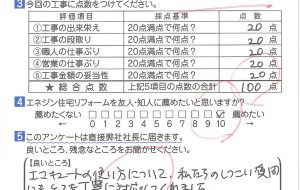 3 今回の工事に点数をつけてください。
評価項目 採点基準 点数
①工事の出来栄え 20点満点で何点? 20点
②工事の段取り 20点満点で何点? 20点
③職人の仕事ぶり 20点満点で何点? 20点
④営業の仕事ぶり 20点満点で何点? 20点
⑤工事金額の妥当性 20点満点で何点? 20点
★総合点数 上記5項目の点数の合計 100点
4 エネジン住宅リフォームを友人・知人に薦めたいと思いますか?
薦めたくない 薦めたい
0 1 2 3 4 5 6 7 8 9 10
5 このアンケートは直接弊社社長に届きます。
良いところ、残念なところをお聞かせください。
【良いところ】
エコキュートの使い方について、私たちのしつこい質問